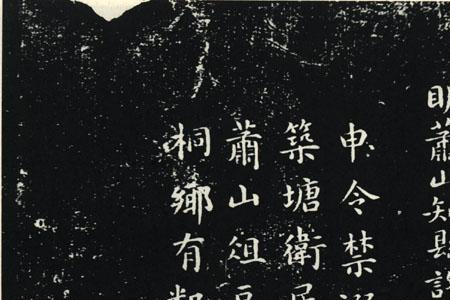 明蕭山知縣
申令禁
築塘衛
蕭山俎豆
桐鄉有